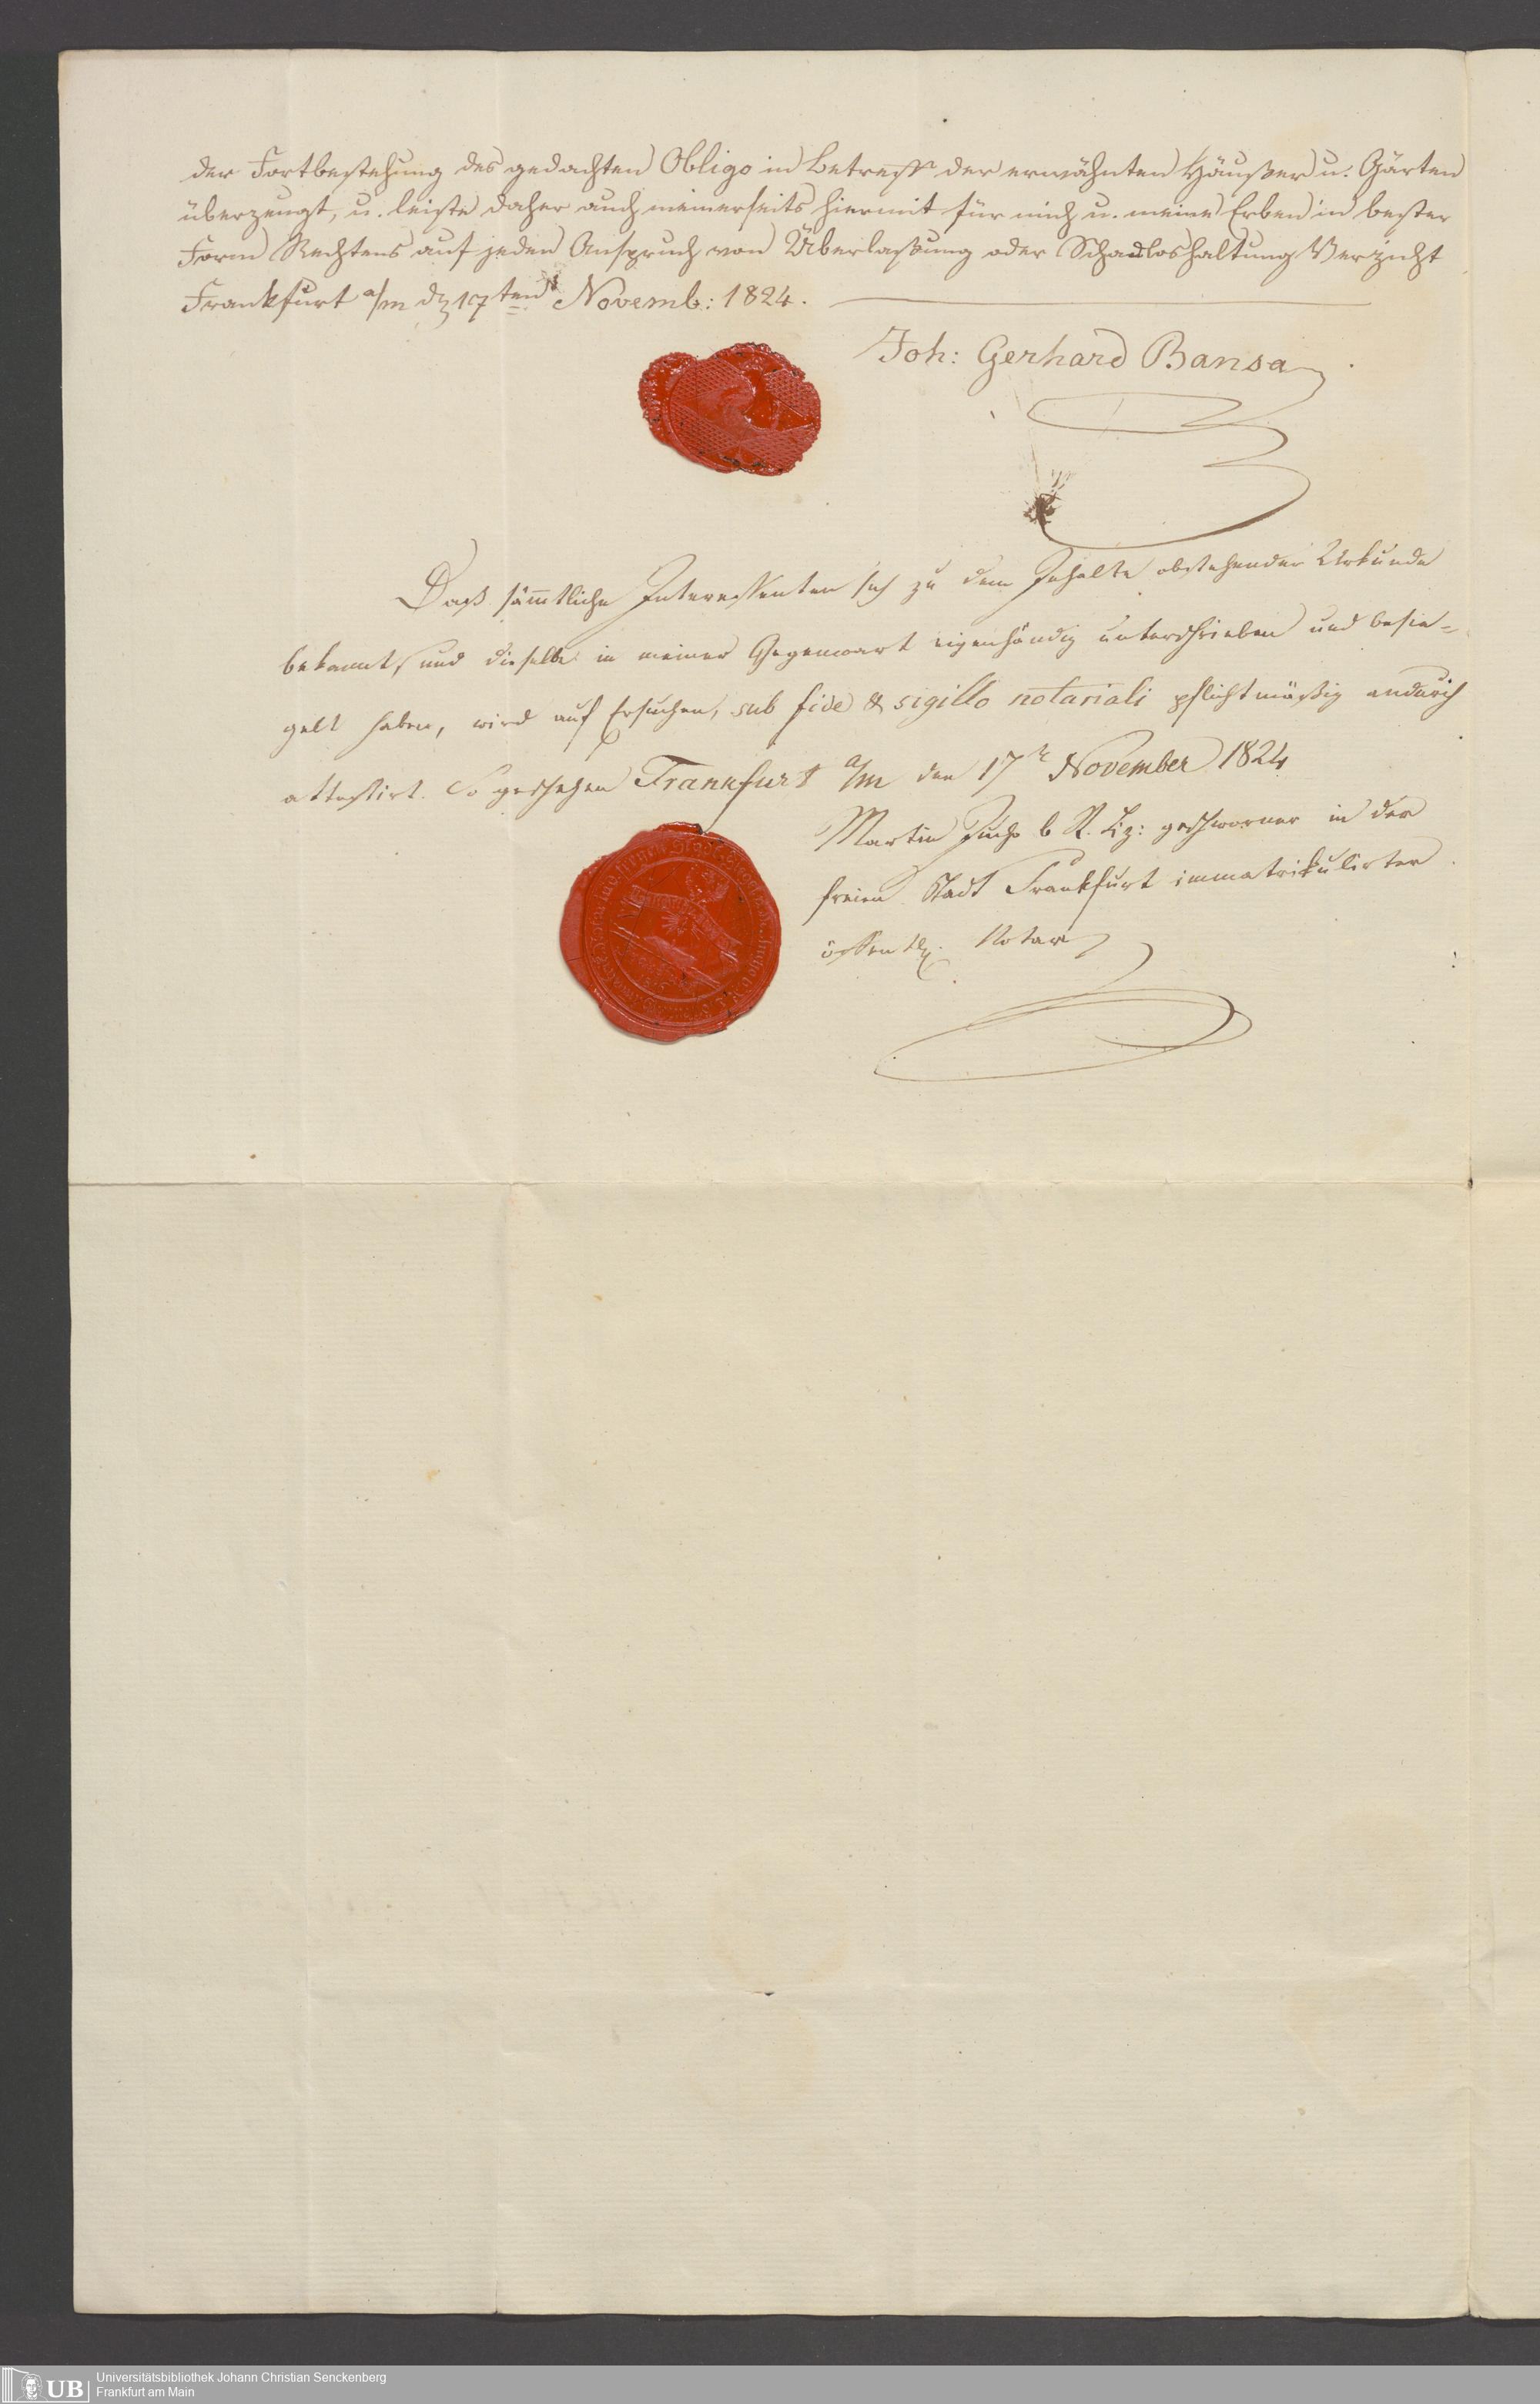 der Fortbestehung des gedachten Obligo in Betreff der erwähnten Häußer u. Gärten
überzeugt, u. leiste daher auch meinerseits hiermit für mich u. meine Erben in bester
Form Rechtens auf jeden Anspruch von Überlaßung oder Schadloshaltung Verzicht
Frankfurt a/m d. 17ten Novemb: 1824.
Joh: Gerhard Bansa
Daß sämtliche Interessenten sich zu dem Inhalte obstehender Urkunde
bekannt, und dieselbe in meiner Gegenwart eigenhändig unterschrieben und besie-
gelt haben, wird auf Ersuchen, sub fide & sigillo notariali pflichtmäßig andurch
attestirt. So geschehen Frankfurt a/m den 17t November 1824
Martin b R. Liz: geschworner in der
freien Stadt Frankfurt immatrikulirter
öffentl. Notar
UB
Universitätsbibliothek Johann Christian Senckenberg
Frankfurt am Main